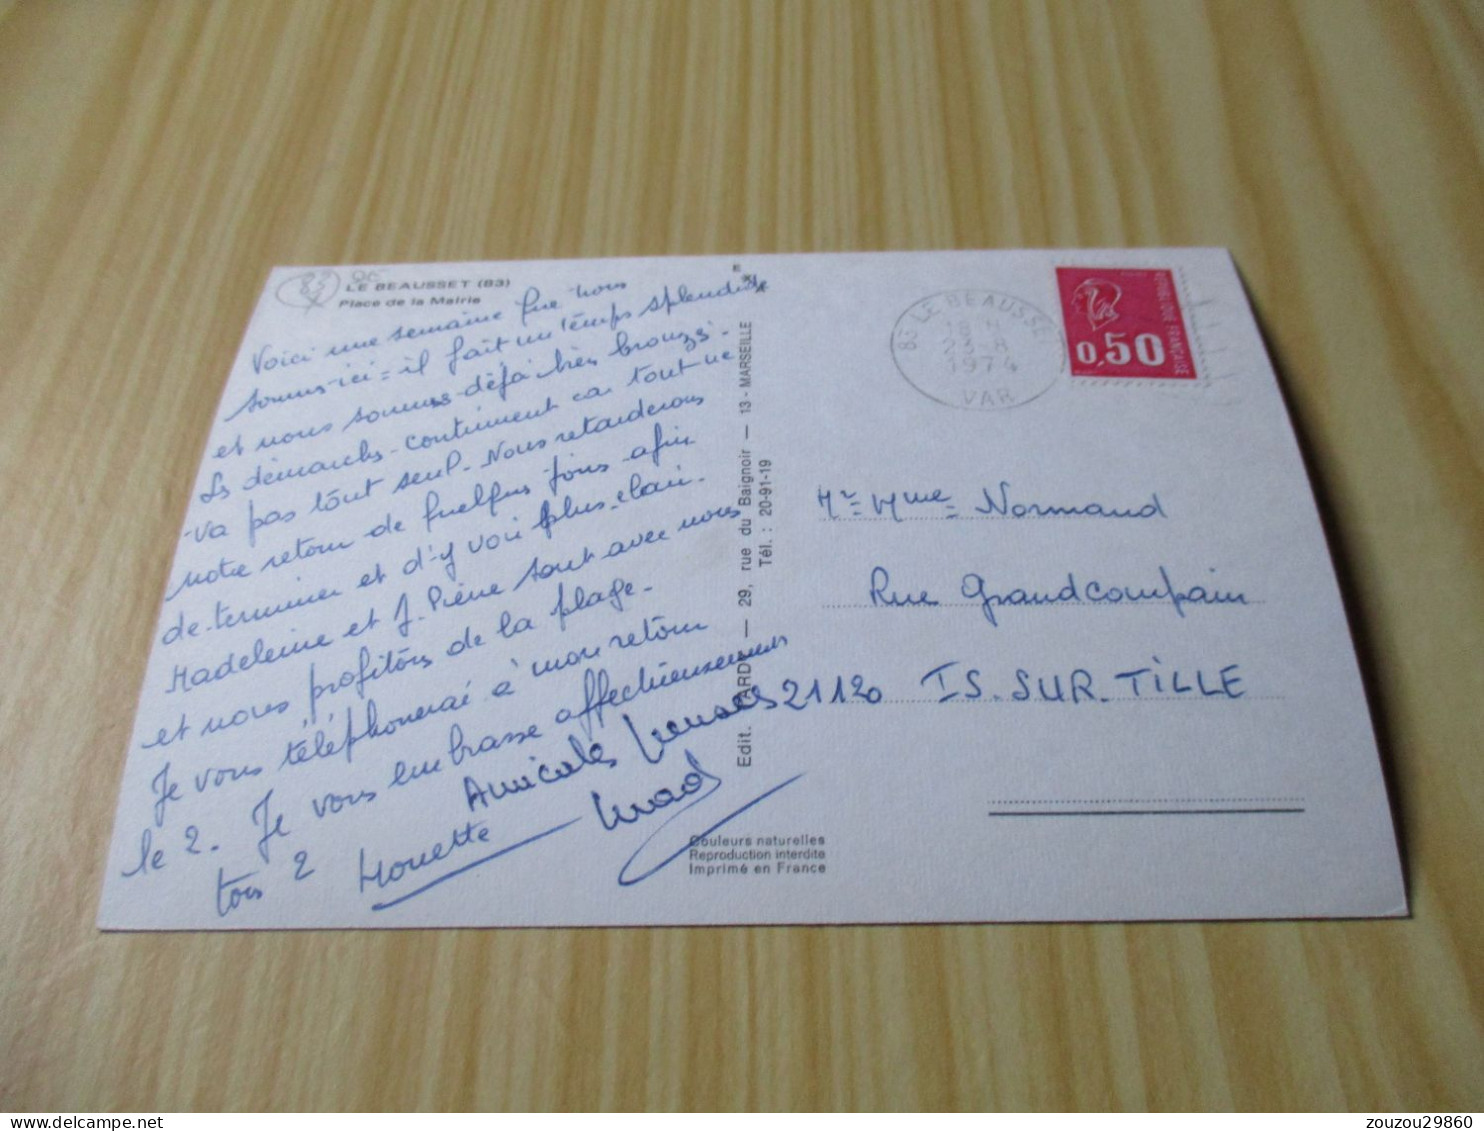 83
LE BEAUSSET (83)
Place de la Mairie
Voici une semaine que nous
sommes ici = il fait un temps splendide
et nous sommes déjà très bronzés -
Les démarches continuent car tout ne
va pas tout seul - Nous retarderons
notre retour de quelques jours afin
de terminer et d'y voir plus clair -
Madeleine et J. Pierre sont avec nous
et nous profitons de la plage -
Je vous téléphonerai à mon retour
le 2. Je vous embrasse affectueusement
tous 2 Mouette
Amicales pensées
Edit.
29, rue du Baignoir — 13 - MARSEILLE
Tél. : 20-91-19
Couleurs naturelles
Reproduction interdite
Imprimé en France
83 LE BEAUSSET
18 H
23-8
1974
VAR
REPUBLIQUE FRANÇAISE
0,50
Mr = Mme = Normand
Rue Grandcompain
21120 IS. SUR. TILLE
zouzou29860